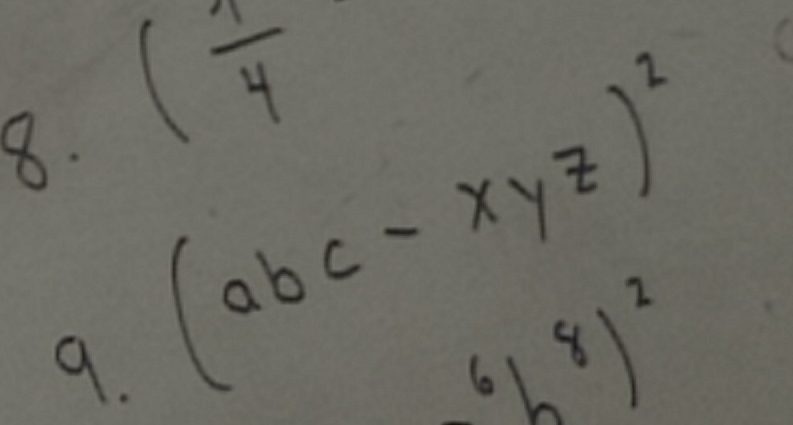 8. (π/4
9. (abc - xyz)²
⁶b⁸)²